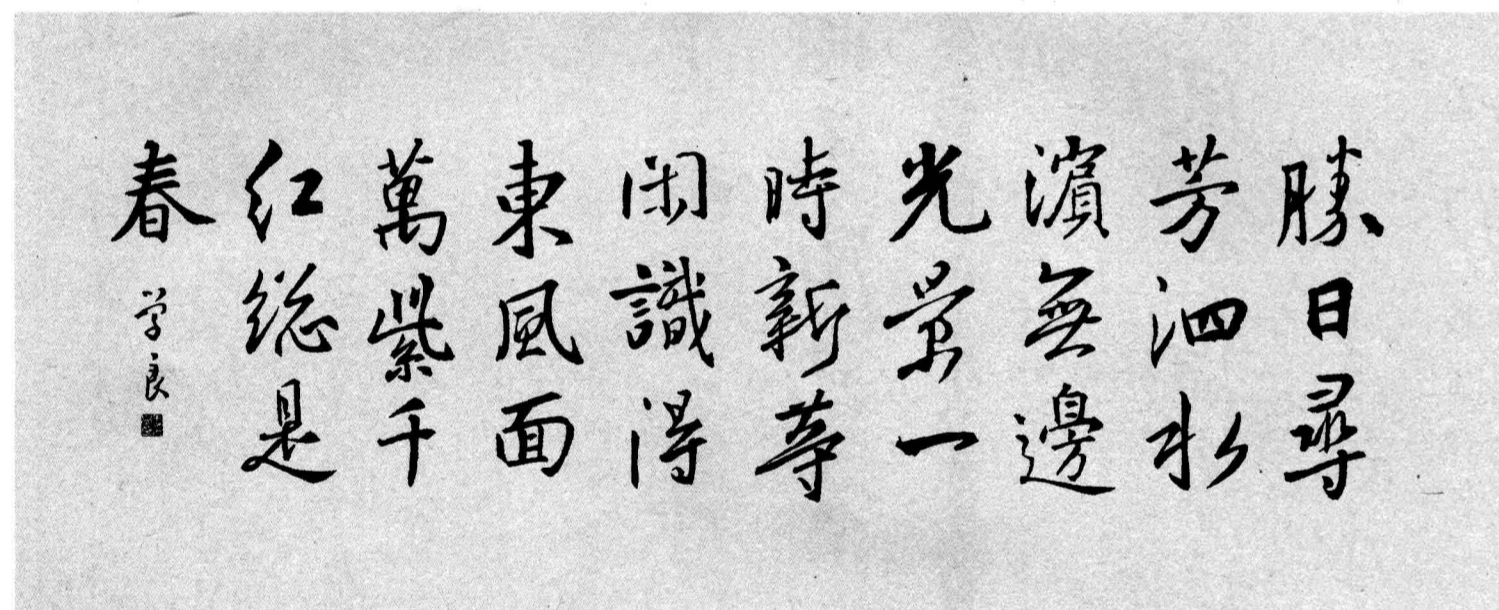 勝日尋
芳泗水
濵無邊
光景一
時新等
閑識得
東風面
萬紫千
紅総是
春
学良